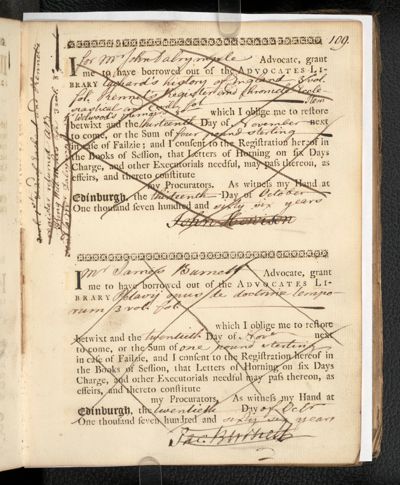 109.
I for Mr John Dalrymple Advocate, grant
me to have borrowed out of the ADVOCATES LI-
BRARY Echard's history of England 3 vol.
fol. Kennet's Register and Chronicle Eccle-
siastical and Civil fol
which I oblige me to restore
betwixt and the thirteenth Day of November next
to come, or the Sum of four pound sterling
in case of Failzie; and I consent to the Registration hereof in
the Books of Session, that Letters of Horning on six Days
Charge, and other Executorials needful, may pass thereon, as
effeirs, and thereto constitute
my Procurators. As witness my Hand at
Edinburgh, the thirteenth Day of October
One thousand seven hundred and sixty six years
I Mr James Burnett Advocate, grant
me to have borrowed out of the ADVOCATES LI-
BRARY Petavij opus de doctrina tempo-
rum 3 vol. fol.
which I oblige me to restore
betwixt and the twentieth Day of Novr next
to come, or the Sum of one pound sterling
in case of Failzie, and I consent to the Registration hereof in
the Books of Session, that Letters of Horning on six Days
Charge, and other Executorials needful may pass thereon, as
effeirs, and thereto constitute
my Procurators, As witness my Hand at
Edinburgh, the twentieth Day of Octr
One thousand seven hundred and sixty six years
Ja. Burnett